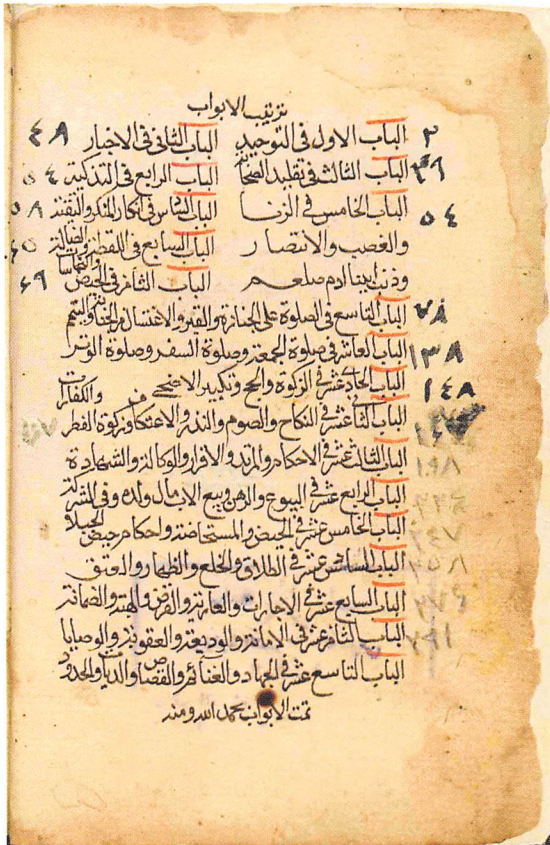 ترتيب الابواب
٢ الباب الاول فى التوحيد الباب الثانى فى الاخبار ٤٨
٣٩ الباب الثالث فى تقليد الباب الرابع فى التذكية ٥٤
٥٤ الباب الخامس فى الزنا الباب فى ٥٨
والغصب والانتصار الباب السابع فى اللقطة
وذنب ابينا ادم صلعم الباب الثامن فى الحيض ٦٩
٧٨ الباب التاسع فى الصلوة على الجنازة والقبر والاغتسال من الجنابة والتيمم
١٣٨ الباب العاشر فى صلوة الجمعة وصلوة السفر وصلوة الوتر
١٤٨ الباب الحادى عشر فى الزكوة والحج وتكبير الاضحى
الباب الثانى عشر فى النكاح والصوم والنذر والاعتكاف وزكوة الفطر والكفارات
١٩٨ الباب الثالث عشر فى الاحكام والمرتد والاقرار والوكالة والشهادة
الباب الرابع عشر فى البيوع والرهن وبيع الاب مال ولده وفى الشركة
٢٤٧ الباب الخامس عشر فى الحيض والمستحاضة واحكام حيض الحبلا
٢٥٨ الباب السادس عشر فى الطلاق والخلع والظهار والعتق
٢٧٩ الباب السابع عشر فى الاجارات والعارية والقرض والهبة والضمانة
٢٩١ الباب الثامن عشر فى الامانة والوديعة والعقوبة والوصايا
الباب التاسع عشر فى الجهاد والغنائم والقصاص والديات والحدود
تمت الابواب بحمد الله ومنه